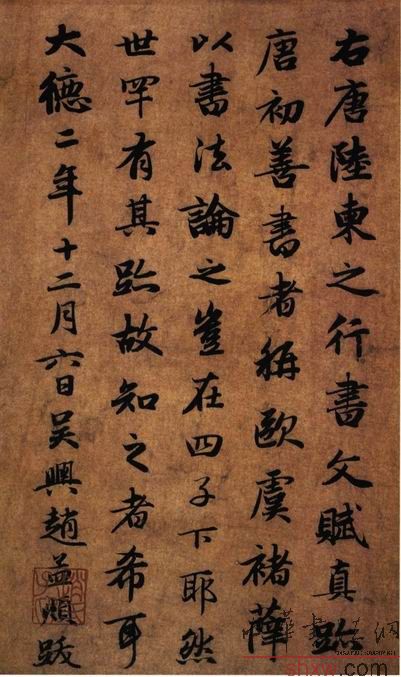 右唐陸東之行書文賦真跡
唐初善書者稱歐虞褚薛
以書法論之豈在四子下耶然
世罕有其跡故知之者希耳
大德二年十二月六日吴興趙孟頫跋
shxw.com